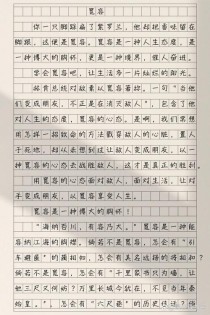 宽容
你一只脚踩扁了紫罗兰,他却把香味留在
脚跟,这便是宽容。宽容是一种人生态度,是
一种博大的胸怀,更是一种境界,催人奋进。
学会宽容吧,让生活多一片灿烂的阳光。
林肯总统对政敌以宽容著称。一句"当他
们变成朋友,不正是在消灭敌人",包含了他
对人生的态度,宽容的心态。是啊,我们常想
用怎样一招致命的方法戳穿敌人的心脏,置人
于死地,却从来想到过让敌人变成朋友,以一
种宽容的心态去战胜敌人,这才是真正的胜利。
用宽容的心态面对敌人,面对生活,让对
手变成朋友,以宽容享受人生。
宽容是一种博大的胸怀!
"海纳百川,有容乃大。"宽容是一种能
容纳江海的胸襟。倘若不是宽容,怎会有"引
车避匿"的蔺相如,怎会有名远扬的将相和?
倘若不是宽容,怎会有"千里家书只为墙,让
他三尺又何妨?万里长城今犹在,不见当年秦
始皇。",怎会有"六尺巷"的历史佳话?倘